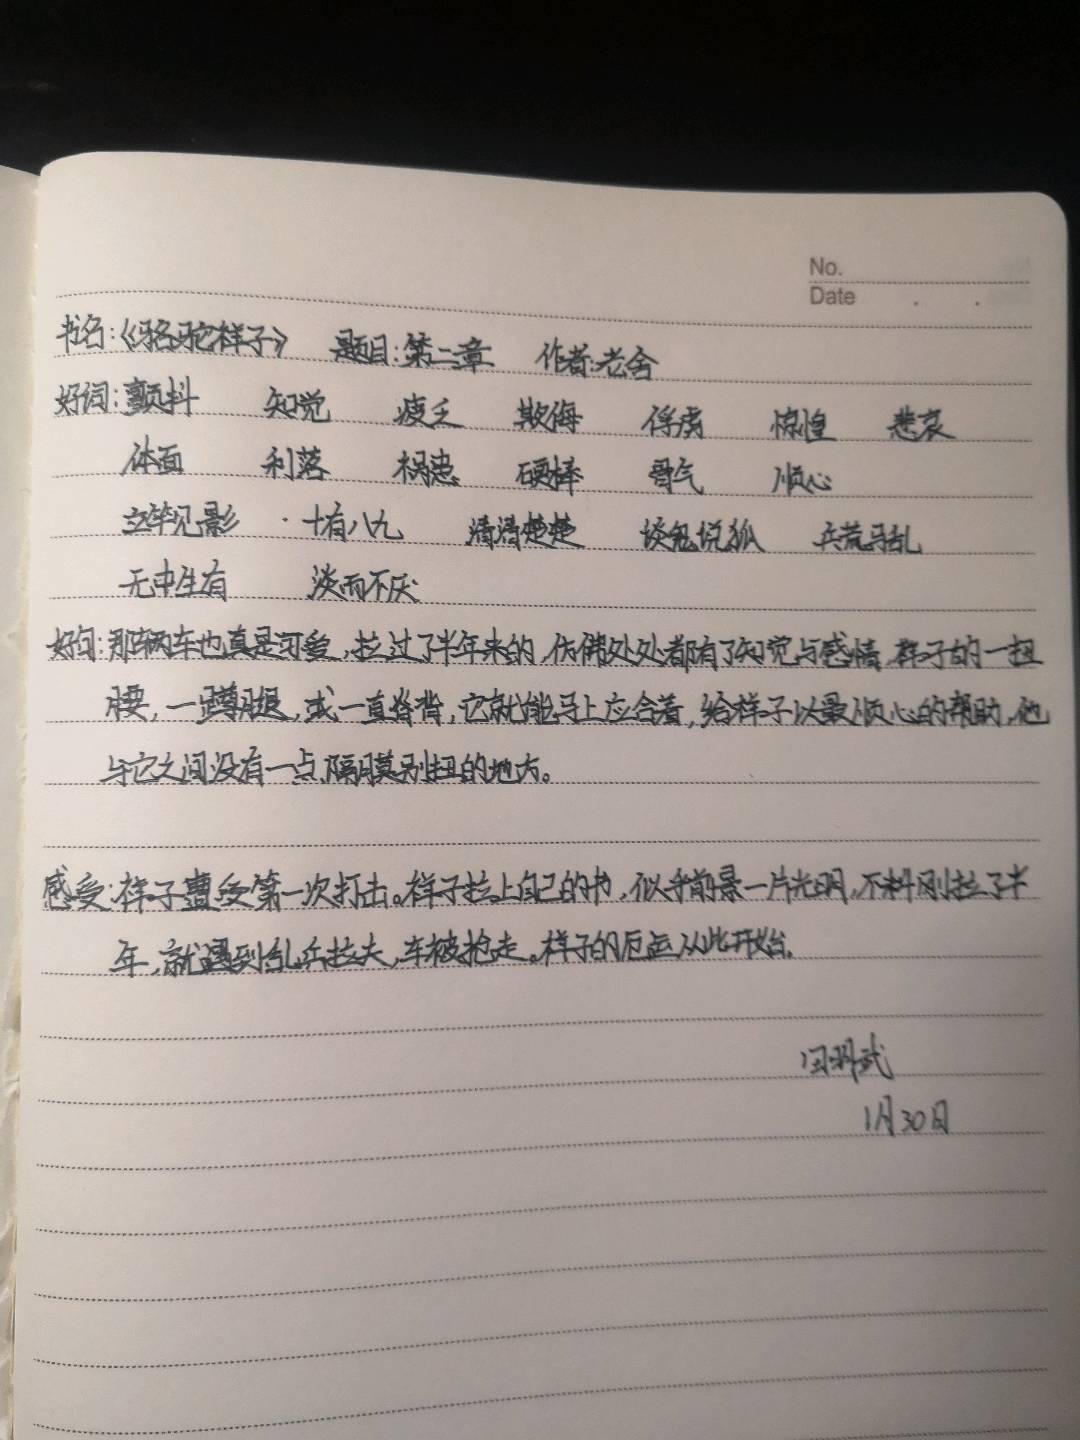 No.
Date
书名:《骆驼样子》 题目:第二章 作者:老舍
好词:颤抖 知觉 疲乏 欺侮 俘虏 惊惶 悲哀
体面 利落 祸患 硬棒 骨气 顺心
立竿见影 十有八九 清清楚楚 谈鬼说狐 兵荒马乱
无中生有 淡而不厌
好句:那辆车也真是可爱,拉过了半年来的,仿佛处处都有了知觉与感情,样子的一扭
腰,一蹲腿,或一直脊背,它就能马上应合着,给样子以最顺心的帮助,他
与它之间没有一点隔膜别扭的地方。
感受:样子遭受第一次打击。样子拉上自己的车,似乎前景一片光明,不料刚拉了半
年,就遇到乱兵拉夫,车被抢走。样子的厄运从此开始。
1月30日